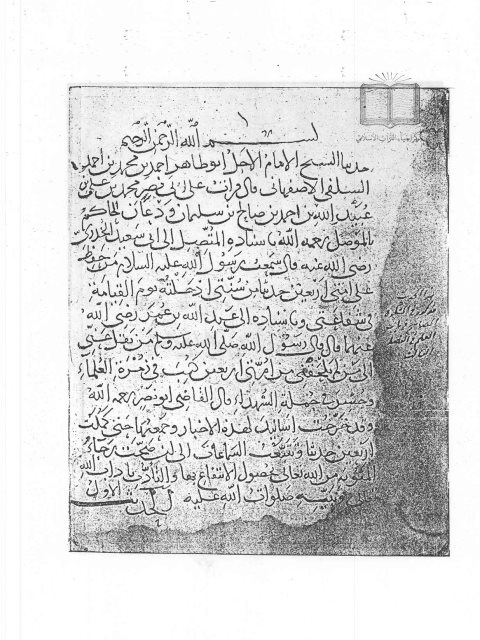 بسم الله الرحمن الرحيم
حدثنا الشيخ الامام الاجل ابو طاهر احمد بن محمد بن احمد
السلفي الاصفهاني قال قرات على ابي نصر محمد بن علي بن
عبيد الله بن احمد بن صالح بن سليمان ودعان الحاكم
بالموصل رحمه الله باسناده المتصل الى ابي سعيد الخدري
رضي الله عنه قال سمعت رسول الله عليه السلام من حفظ
على امتي اربعين حديثا من سنتي ادخلته يوم القيامة
في شفاعتي وباسناده الى عبد الله بن عمر رضي الله
عنهما قال قال رسول الله صلى الله عليه وسلم من نقل عني
الى من لم يلحقني من امتي اربعين كتب في زمرة العلماء
وحشر في جملة الشهداء قال القاضي ابو نصر رحمه الله
وقد خرجت اسانيد لهذه الاخبار وجمعتها حتى كملت
اربعين حديثا السماعات الى ان صحت رجاء
المثوبة من الله تعالى بحصول الانتفاع بها والتأدب باداب الله
نبيه صلوات الله عليه الحديث الاول